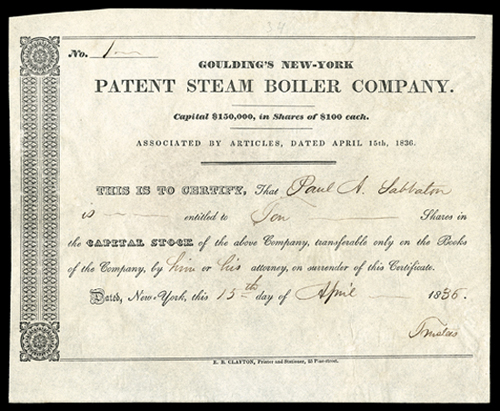 34
No. 1
GOULDING'S NEW-YORK
PATENT STEAM BOILER COMPANY.
Capital $150,000, in Shares of $100 each.
ASSOCIATED BY ARTICLES, DATED APRIL 15th, 1836.
THIS IS TO CERTIFY, That Paul A. Sabbaton
is entitled to Ten Shares in
the CAPITAL STOCK of the above Company, transferable only on the Books
of the Company, by him or his attorney, on surrender of this Certificate.
Dated, New-York, this 15th day of April 1836.
Trustees
E. B. CLAYTON, Printer and Stationer, 25 Pine-street.